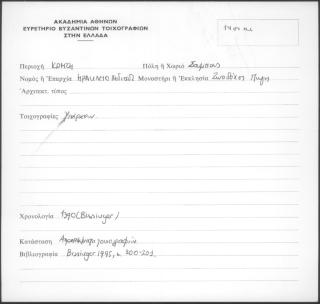 ΑΚΑΔΗΜΙΑ ΑΘΗΝΩΝ
ΕΥΡΕΤΗΡΙΟ ΒΥΖΑΝΤΙΝΩΝ ΤΟΙΧΟΓΡΑΦΙΩΝ
ΣΤΗΝ ΕΛΛΑΔΑ
Περιοχή ΚΡΗΤΗ Πόλη ἤ Χωριό Σαμπάς
Νομός ἤ Ἐπαρχία ΗΡΑΚΛΕΙΟ Μοναστήρι ἤ Ἐκκλησία Ζωοδόχος Πηγή
Ἀρχιτεκτ. τύπος
Τοιχογραφίες Υπάρχουν
Χρονολογία 1390 (Bissinger)
Κατάσταση Αποσπάσματα τοιχογραφιών
Βιβλιογραφία Bissinger 1995, 200-201.